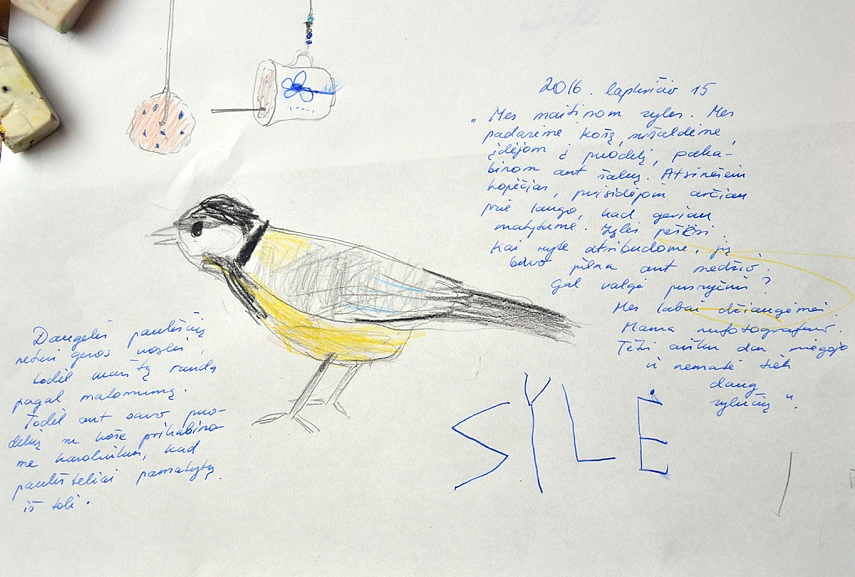 2016. lapkričio 15
„Mes maitinom zyles. Mes
padarėme košę, sušaldėme,
įdėjom į puodelį, paka-
binom ant šakų. Atsinešėm
kopėčias, prisidėjom arčiau
prie lango, kad geriau
matytume. Zylės
Kai ryte atsibudome, jų
buvo pilna ant medžio.
Gal valgė pusryčius?
Mes labai džiaugėmės.
Mama nufotografavo.
Tėtis dar miegojo
ir nematė tiek
daug
zylučių".
SYLĖ
Daugelis paukščių
neturi geros uoslės,
todėl maistą randa
pagal matomumą.
Todėl ant savo puo-
delių su koše prikabino-
me karoliukus, kad
paukšteliai pamatytų
iš toli.